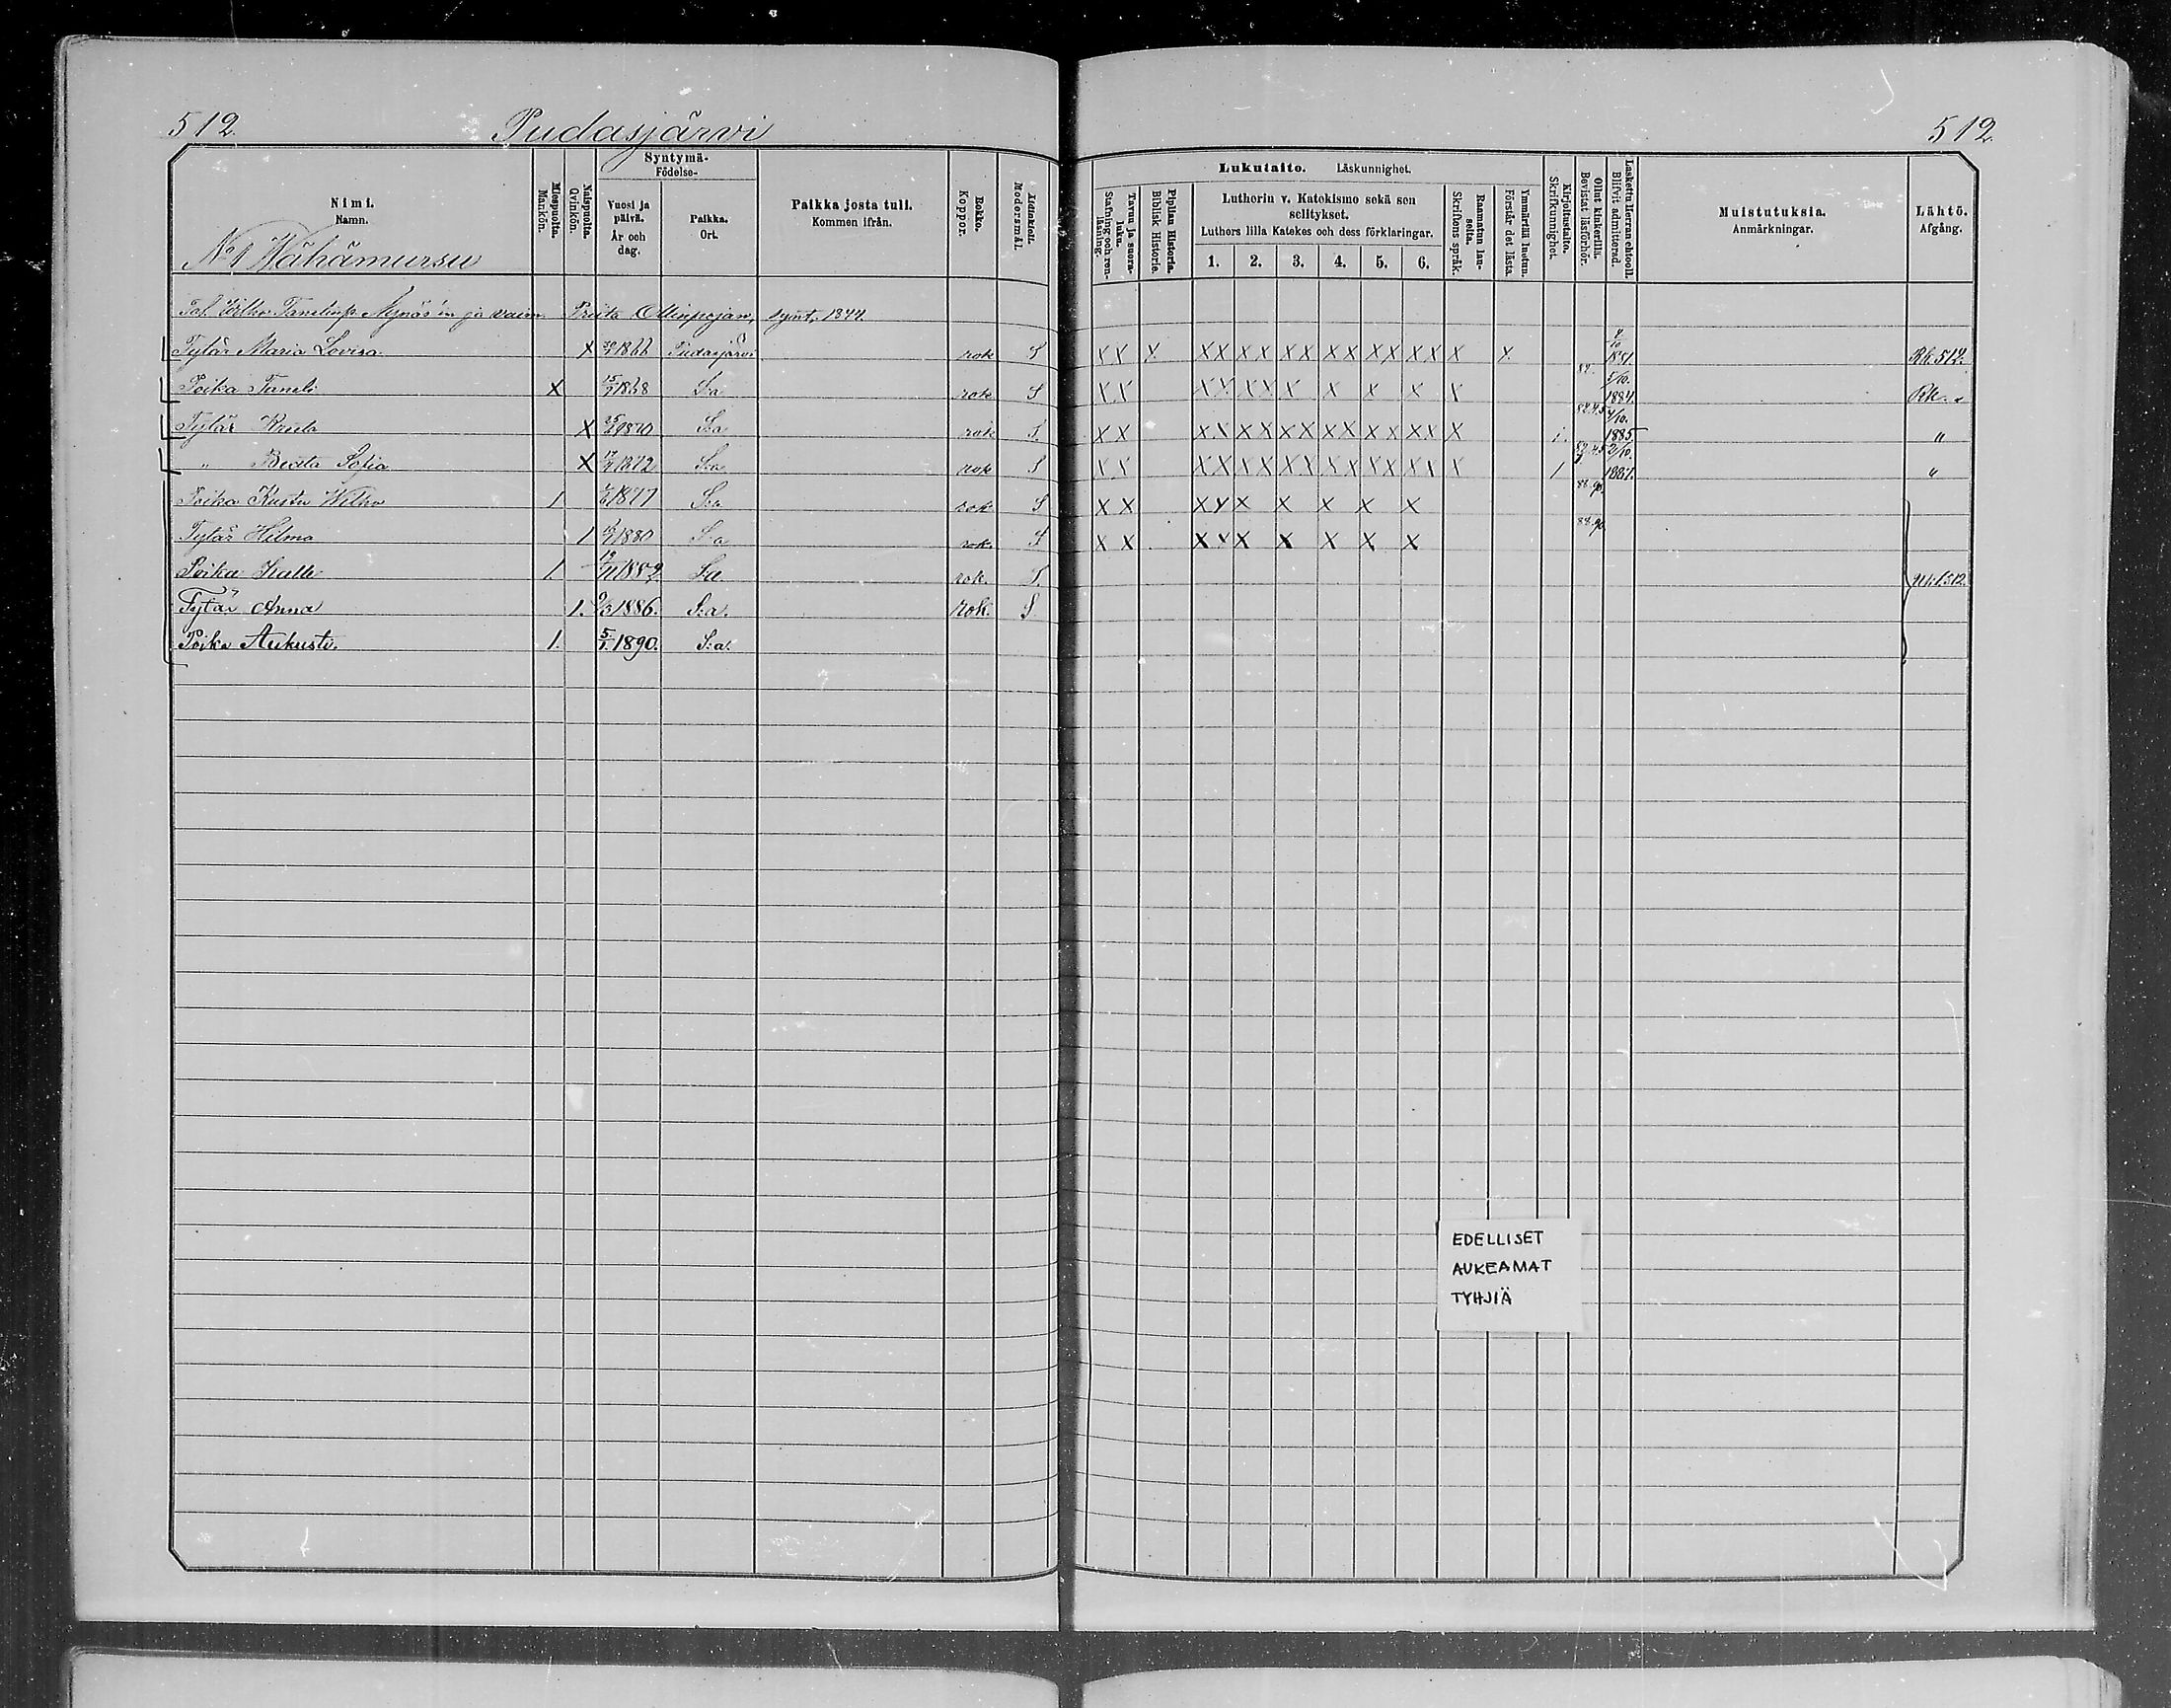 512. Pudasjärvi 512.
Syntymä-
Födelse-
Nimi.
Namn.
Miespuolta.
Mankön.
Naispuolta.
Qvinkön.
Vuosi ja päivä.
År och dag.
Paikka.
Ort.
Paikka josta tuli.
Kommen ifrån.
Rokko.
Koppor.
Äidinkieli.
Modersmål.
Lukutaito. Läskunnighet.
Tavuu ja suora-luku.
Stafning och ren-läsning.
Piplian Historia.
Biblisk Historie.
Lutherin v. Katekismo sekä sen selitykset.
Luthers lilla Katekes och dess förklaringar.
1. 2. 3. 4. 5. 6.
Raamatun lau-seita.
Skriftens språk.
Ymmärtää luetun.
Förstår det lästa.
Kirjoitustaito.
Skrifkunnighet.
Ollut kinkerillä.
Bevistat läsförhör.
Laskettu Herran ehtooll.
Blifvit admitterad.
Muistutuksia.
Anmärkningar.
Lähtö.
Afgång.
No 1 Wähämursu
ja vaim. Priita Ollinpojan, synt. 1844
Tytär Maria Lovisa X 1866 Pudasjärvi rok S X X X X X X X X X X X X X X X X X Rk. 512.
Poika Taneli X 1868 S:a rok S X X X X X X X X X X X 5/10. 1884. Rk. "
Tytär X 1870 S:a rok S. X X X X X X X X X X X X X X X 1. 4/10. 1885 "
" Sofia X 1872 S:a rok S X X X X X X X X X X X X X X X 1 2/10. 1887. "
Poika Kusta Wilho 1 1877 S:a rok S X X X X X X X X X 88.90.
Tytär Hilma 1 1880 S:a rok. S X X X X X X X X X 88.90.
Poika Kalle 1. 1882 S:a rok. S. 512.
Tytär Anna 1. 9/3 1886. S:a. rok. S
Poika Aukusti. 1. 5/1. 1890. S:a.
EDELLISET
AUKEAMAT
TYHJIÄ